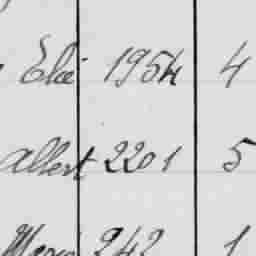 Elie 1954 4
Albert 2201 5
242 1